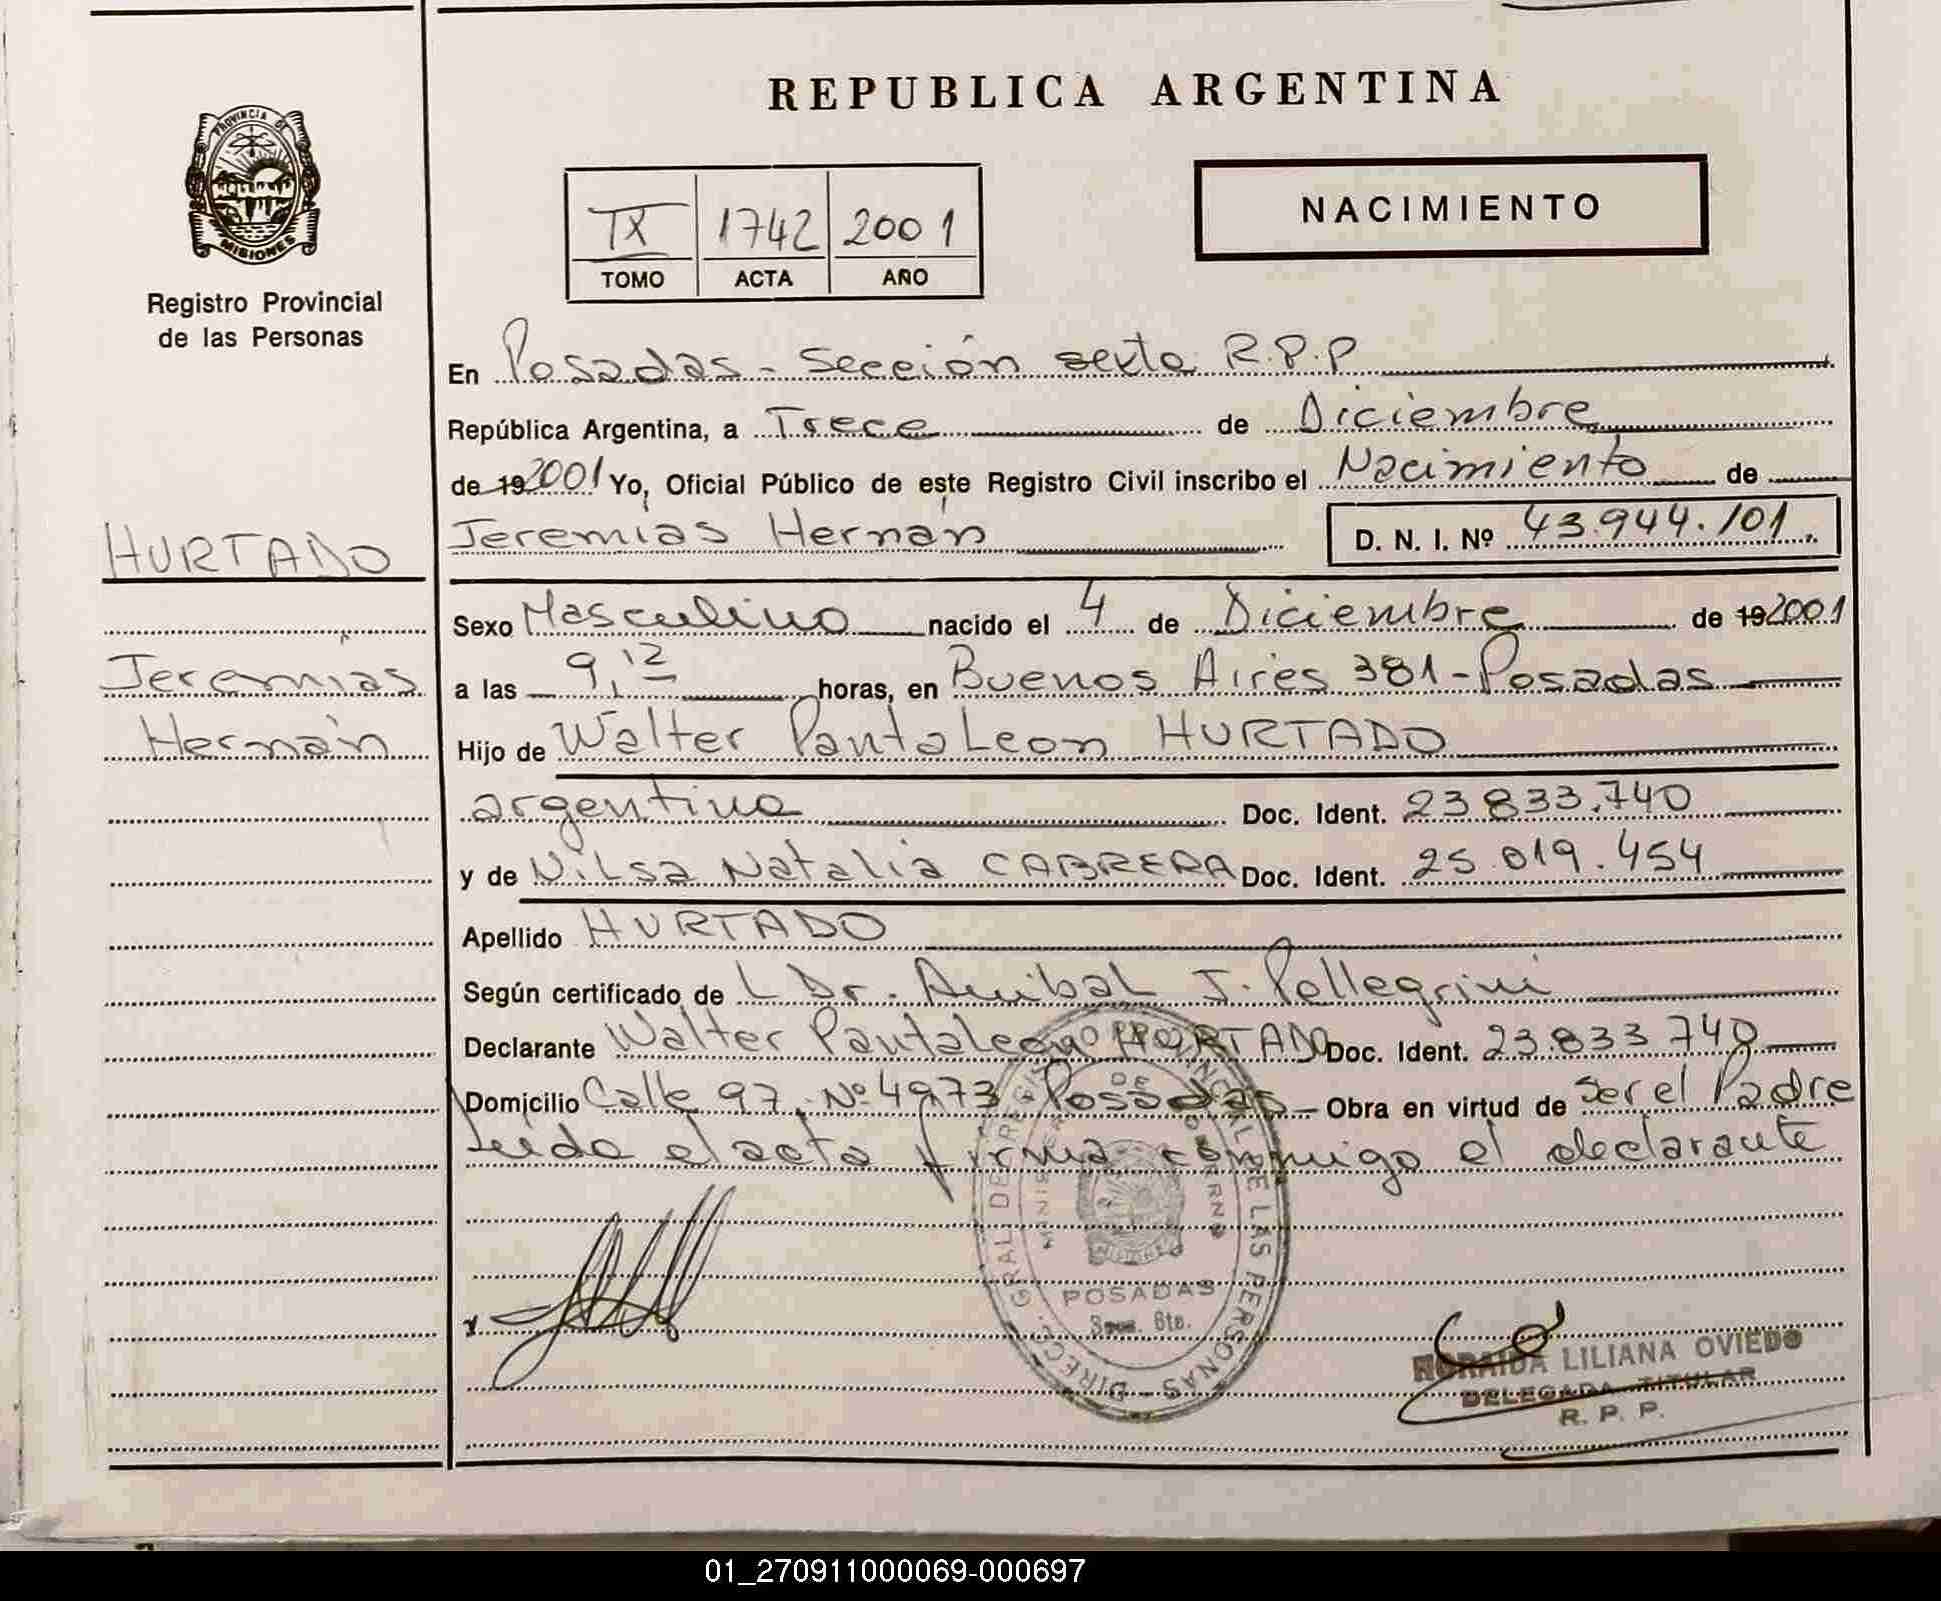 REPUBLICA ARGENTINA
PROVINCIA DE
MISIONES
Registro Provincial
de las Personas
IX 1742 2001
TOMO ACTA AÑO
NACIMIENTO
En Posadas - Sección sexta R.P.P
República Argentina, a Trece de Diciembre
de 19 2001 Yo, Oficial Público de este Registro Civil inscribo el Nacimiento de
HURTADO
Jeremías Hernán D. N. I. Nº 43.944.101
Sexo Masculino nacido el 4 de Diciembre de 19 2001
Jeremías
a las 9,12 horas, en Buenos Aires 381 - Posadas
Hernán
Hijo de Walter Pantaleon HURTADO
argentina Doc. Ident. 23.833.740
y de Nilsa Natalia CABRERA Doc. Ident. 25.019.454
Apellido HURTADO
Según certificado de L Dr. Anibal J. Pellegrini
Declarante Walter Pantaleon HURTADO Doc. Ident. 23.833.740
Domicilio Calle 97 Nº 4973 Posadas Obra en virtud de Ser el Padre
Leído el acta firma conmigo el declarante
DIRECC. GRAL. DE REGISTRO PROVINCIAL DE LAS PERSONAS
MINISTERIO DE GOBIERNO
MISIONES
POSADAS
Secc. 6ta.
LILIANA OVIEDO
DELEGADA TITULAR
R. P. P.
01_270911000069-000697